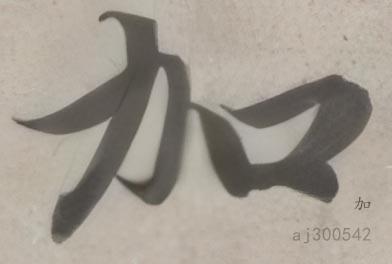 加
加
aj300542